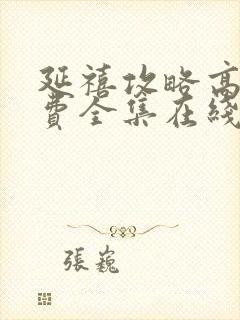 延禧攻略高
費全集在綫
張巍